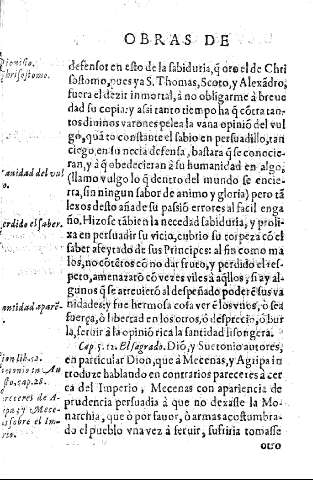 OBRAS DE
Dionisio,
Chrisostomo.
defensor en esto de la sabiduria, q̃ oro el de Chri
sostomo, pues ya S. Thomas, Scoto, y Alexãdro,
fuera el dezir inmortal, à no obligarme à breue
dad su copia: y assi tanto tiempo ha q̃ cõtra tan-
tos diuinos varones pelea la vana opiniõ del vul
go, quãto constante el sabio en persuadillo, tan
ciego, en su necia defensa, bastara q̃ se conocie-
ran, y à q̃ obedecieran à su humanidad en algo,
vanidad del vul
go.
(llamo vulgo lo q̃ dentro del mundo se encie-
rra, sin ningun sabor de animo y gloria) pero tã
lexos desto añade su passiõ errores al facil enga
ño. Hizose tãbien la necedad sabiduria, y proli-
perdido el saber.
xa en persuadir su vicio, cubrio su torpeza cõ el
saber afeytado de sus Principes: al fin como ma
los, no cõtẽtos cõ no dar fruto, y perdido el res-
pero, amenazarõ cõ vozes viles à aq̃llos, si ay al-
gunos q̃ se atreuierõ al despeñado poder de sus va
vanidad aparẽ-
te.
nidades: y fue hermosa cosa ver ẽ los vnos, ò sea
fuerça, ò libertad en los otros, ò desprecio, ò bur
la, seruir à la opiniõ rica la santidad lisongera.
Cap. 5. 12. El sagrado. Diõ, y Suetonio autores,
Dion lib. 52.
en particular Dion, que à Mecenas, y Agripa in
troduze hablando en contrarios pareceres à cer
ca del Imperio, Mecenas con apariencia de
prudencia persuadia à que no dexasse la Mo-
narchia, que ò por fauor, ò armas acostumbra-
do el pueblo vna vez à seruir, sufriria tomasse
Suetonio in Au
gusto, cap. 28.
Pareceres de A
gripa, y Mece-
nas sobre el Im
perio.
otro